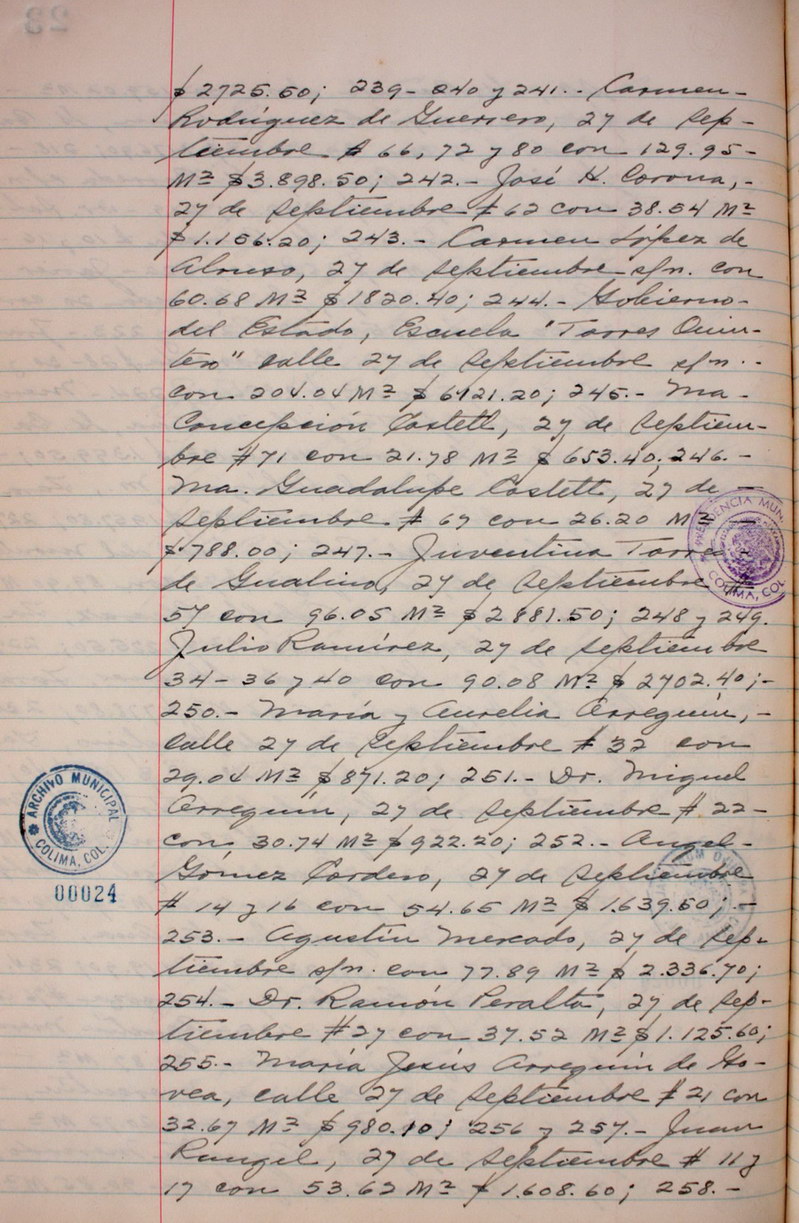 $ 2725.50; 239- 240 y 241.- Carmen-
Rodríguez de Guerrero, 27 de Sep-
tiembre # 66, 72 y 80 con 129.95-
M² $3.898.50; 242.- José H. Corona,-
27 de Septiembre # 62 con 38.54 M²
$1.156.20; 243.- Carmen López de
Alonso, 27 de Septiembre s/n. con
60.68 M² $1820.40; 244.- Gobierno-
del Estado, Escuela "Torres Quin-
tero" calle 27 de Septiembre s/n.-
con 204.04 M² $ 6121.20; 245.- Ma-
Concepción Costett, 27 de Septiem-
bre #71 con 21.78 M² $ 653.40; 246.-
Ma. Guadalupe Costett, 27 de-
Septiembre # 67 con 26.20 M²
$ 788.00; 247.- Juventina Torres-
de Gualino, 27 de Septiembre #
57 con 96.05 M² $2881.50; 248 y 249.
Julio Ramírez, 27 de Septiembre
34-36 y 40 con 90.08 M² $ 2702.40;-
250.- María y Aurelia Arreguín,-
calle 27 de Septiembre # 32 con
29.04 M² $871.20; 251.- Dr. Miguel
Arreguín, 27 de Septiembre # 22-
con 30.74 M² $922.20; 252.- Angel-
Gómez Cordero, 27 de Septiembre
# 14 y 16 con 54.65 M² $1.639.50;.-
253.- Agustín Mercado, 27 de Sep-
tiembre s/n. con 77.89 M² $ 2.336.70;
254.- Dr. Ramón Peralta, 27 de Sep-
tiembre #27 con 37.52 M² $1.125.60;
255.- María Jesús Arreguín de Go-
vea, calle 27 de Septiembre # 21 con
32.67 M² $980.10; 256 y 257.- Juan
Rangel, 27 de Septiembre # 11 y
17 con 53.62 M² $ 1.608.60; 258.-
PRESIDENCIA MUN
COLIMA, COL.
ARCHIVO MUNICIPAL
COLIMA, COL.
00024